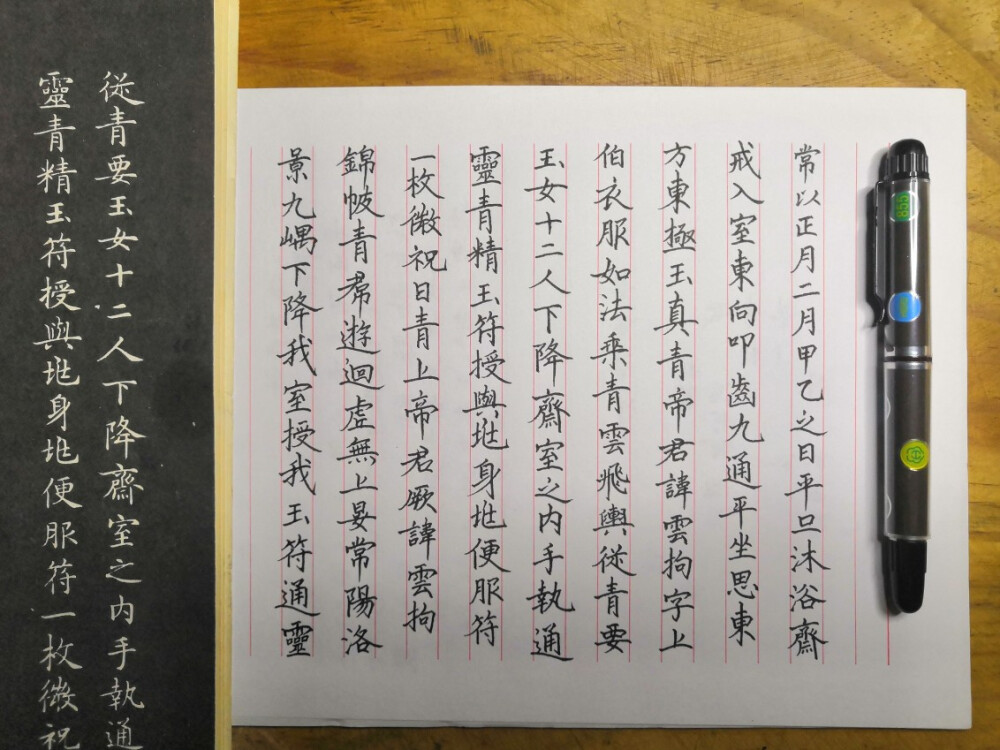 常以正月二月甲乙之日平旦沐浴齋
戒入室東向叩齒九通平坐思東
方東極玉真青帝君諱雲拘字上
伯衣服如法乘青雲飛輿從青要
玉女十二人下降齋室之內手執通
靈青精玉符授與兆身兆便服符
一枚微祝曰青上帝君厥諱雲拘
錦帔青帬遊迴虛無上晏常陽洛
景九嵎下降我室授我玉符通靈
從青要玉女十二人下降齋室之內手執通
靈青精玉符授與兆身兆便服符一枚微祝